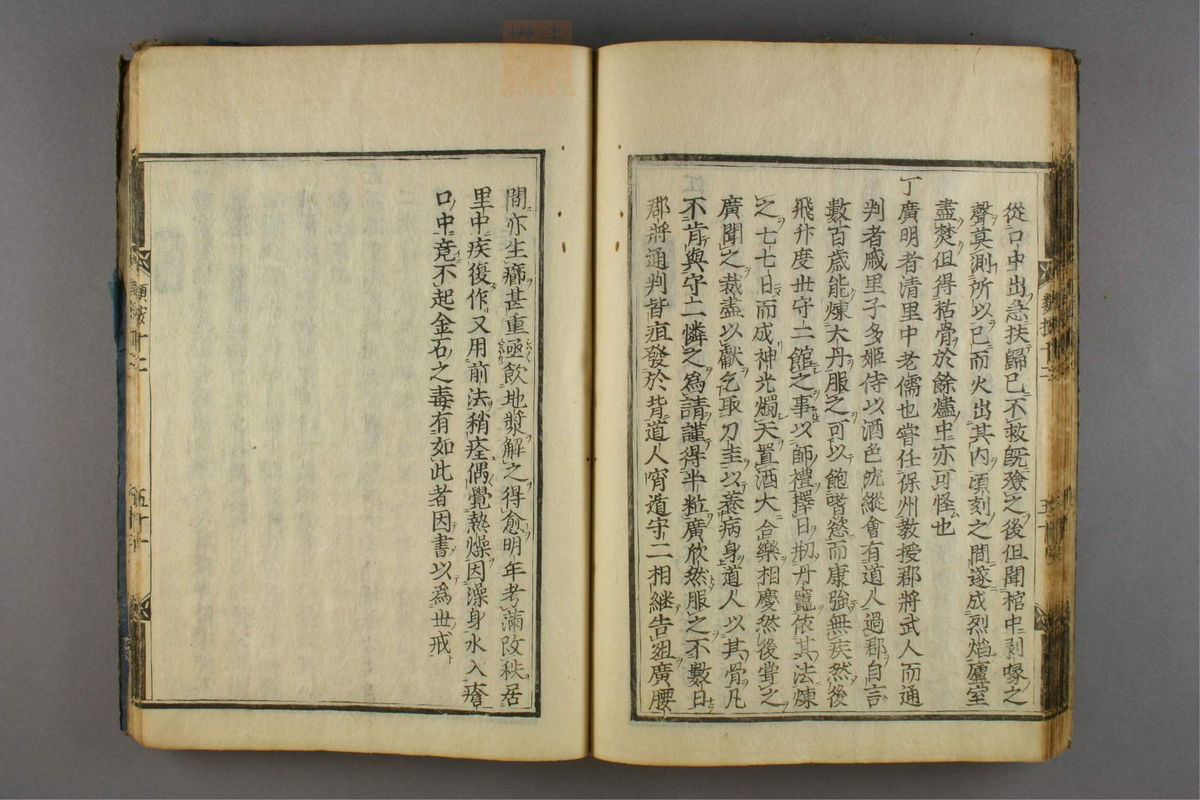 從口中出急扶歸已不救既殮之後但聞棺中剥喙之
聲莫測所以已而火出其內頃刻之間遂成烈焰廬室
盡焚但得枯骨於餘燼中亦可怪也
丁廣明者清里中老儒也嘗任保州教授郡將武人而通
判者戚里子多姬侍以酒色沈縱會有道人過郡自言
數百歲能煉大丹服之可以飽嗜慾而康強無疾然後
飛升度世守二館之事以師禮擇日剏丹竈依其法煉
之七七日而成神光燭天置酒大合樂相慶然後嘗之
廣聞之裁盡以獻乞取刀圭以養病身道人以其骨凡
不肯與守二憐之為請謹得半粒廣欣然服之不數日
郡將通判皆疽發於背道人宵遁守二相継告殂廣腰
間亦生癤甚重亟飲地漿解之得愈明年考滿改秩居
里中疾復作又用前法稍痊偶覺熱燥因澡身水入瘡
口中竟不起金石之毒有如此者因書以為世戒
十二
五十一